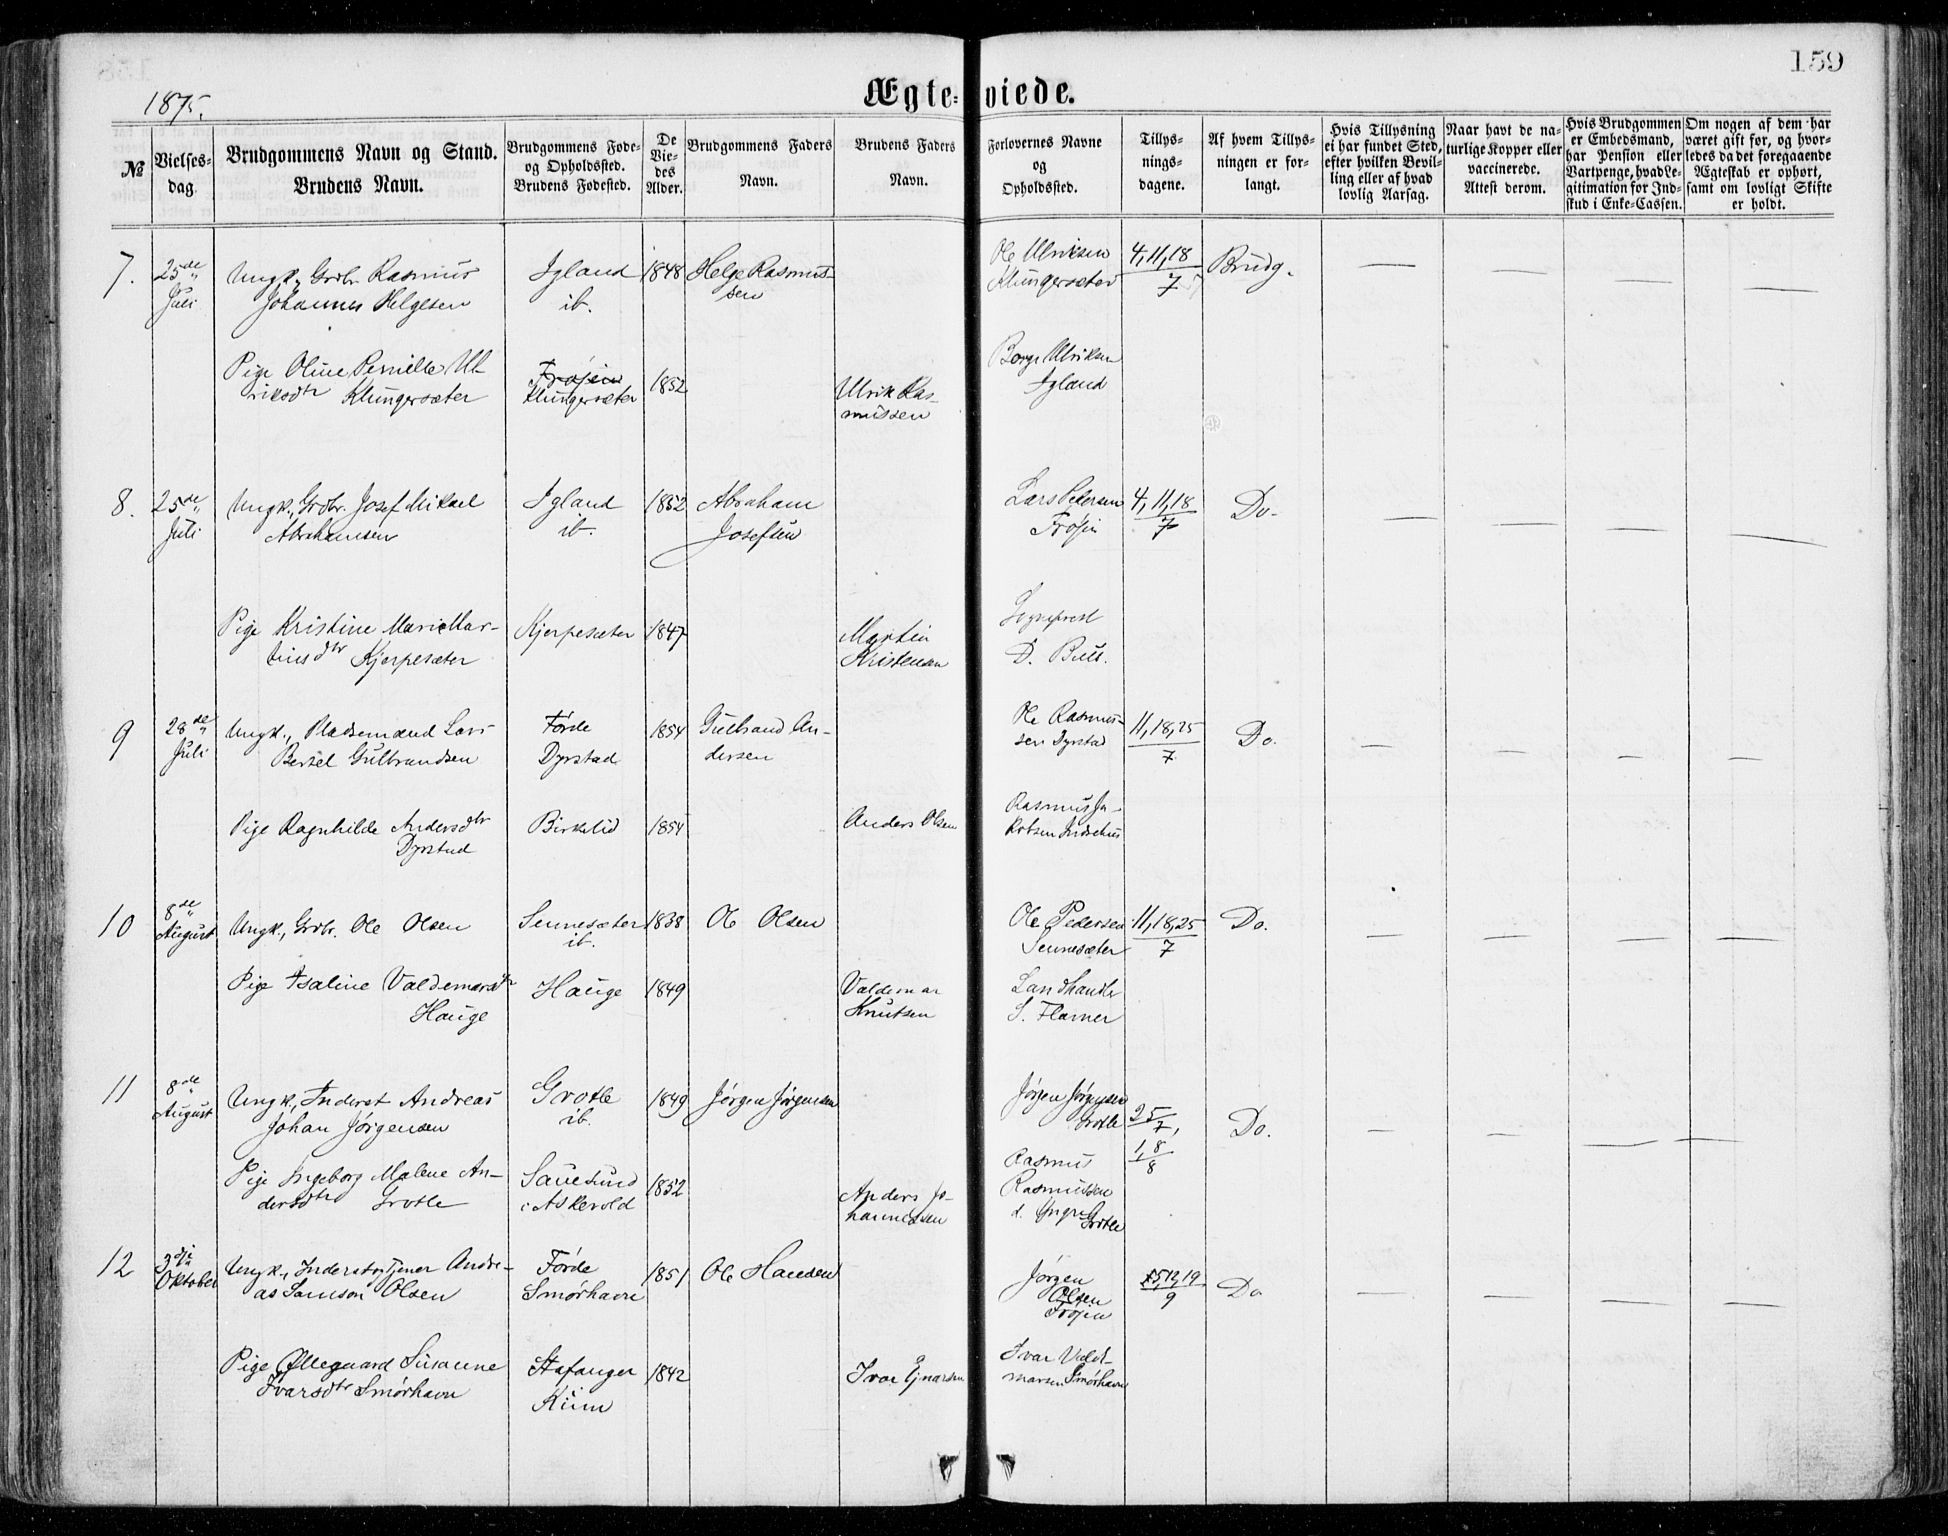 159
1875.
Ægte-viede.
№
Vielses-
dag.
Brudgommens Navn og Stand.
Brudens Navn.
Brudgommens Føde-
og Opholdssted.
Brudens Fødested.
De
Vie-
des
Alder.
Brudgommens Faders
Navn.
Brudens Faders
Navn.
Forlovernes Navne
og
Opholdssted.
Tillys-
nings-
dagene.
Af hvem Tillys-
ningen er for-
langt.
Hvis Tillysning
ei har fundet Sted,
efter hvilken Bevil-
ling eller af hvad
lovlig Aarsag.
Naar havt de na-
turlige Kopper eller
vaccinerede.
Attest derom.
Hvis Brudgommen
er Embedsmand,
har Pension eller
Vartpenge, hvad Le-
gitimation for Ind-
skud i Enke-Cassen.
Om nogen af dem har
været gift før, og hvor-
ledes da det foregaaende
Ægteskab er ophørt,
samt om lovligt Skifte
er holdt.
7. 25de Juli
Ungk., Grdbr. Rasmus
Johannes Helgesen
Igland
ib.
1848
Helge Rasmus-
sen
Ole Ulriksen
Klungersæter
4, 11, 18
7
Brudg.
Pige Oline Pernille Ul-
riksdtr Klungersæter
Frøjen
Klungersæter
1852
Ulrik Ras-
mussen
Børge Ulriksen
Igland
8. 25de Juli
Ungk., Grdbr. Josef Mikael
Abrahamsen
Igland
ib.
1852
Abraham
Josefsen
Lars Pedersen
Frøjen
4, 11, 18
7
Do.
Pige Kristine Marie Mar-
tinsdtr Kjerpesæter
Kjerpesæter
1847
Martin
Kristensen
Sogneprest
D. Bull.
9 28de Juli
Ungk., Pladsemand Lars
Bertel Gulbrandsen
Førde
Dyrstad
1854
Gulbrand An-
dersen
Ole Rasmus-
sen Dyrstad
11, 18, 25
7
Do.
Pige Ragnhilde Andersdtr
Dyrstad
Birkelid
1854
Anders Olsen
Rasmus Ja-
kobsen Indrehus
10 8de August
Ungk., Grdbr. Ole Olsen
Sennesæter
ib.
1838
Ole Olsen
Ole Pedersen
Sennesæter
11, 18, 25
7
Do.
Pige Isaline Valdemarsdtr
Hauge
Hauge
1849
Valdemar
Knutsen
Landhandler
S. Flarner
11 8de August
Ungk., Inderst Andreas
Johan Jørgensen
Grotle
ib.
1849
Jørgen Jørgensen
Jørgen Jørgensen
Grotle
25
7,
1, 8
8
Do.
Pige Ingeborg Malene An-
dersdtr Grotle
Sauesund
i Askevold
1852
Anders Jo-
hannessen
Rasmus
Rasmussen
d. Yngre
Grotle
12 3dje Oktober
Ungk., Inderst og Tjener Andre-
as Samson Olsen
Førde
Smørhavn
1851
Ole Hansen
Jørgen
Olsen
Frøjen
5, 12, 19
9
Do
Pige Øllegaard Susanne
Ivarsdtr Smørhavn
Stafanger
Kiinn
1842
Ivar Ejnarsen
Ivar Valde-
marsen Smørhavn